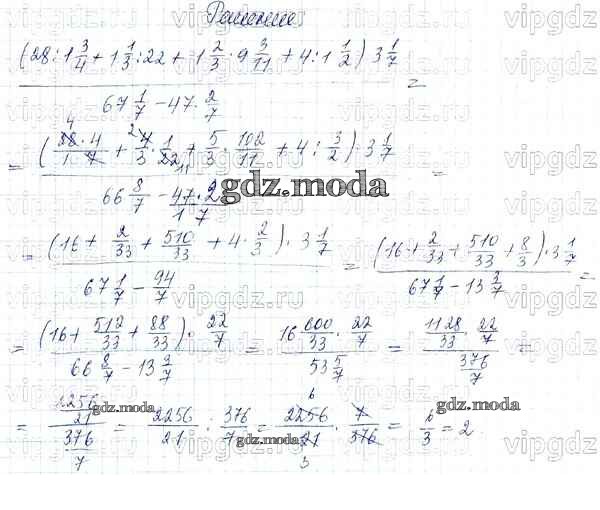 Решение
(28 : 1 3/4 + 1 1/3 : 22 + 1 2/3 · 9 3/11 + 4 : 1 1/2) 3 1/7 / 67 1/7 − 47 · 2/7 =
= (28 · 4 / 1 · 7 + 4/3 · 1/22 + 5/3 · 102/11 + 4 : 3/2) · 3 1/7 / 66 8/7 − 47 · 2 / 1 7 =
gdz.moda
= (16 + 2/33 + 510/33 + 4 · 2/3) · 3 1/7 / 67 1/7 − 94/7 = (16 + 2/33 + 510/33 + 8/3) · 3 1/7 / 67 1/7 − 13 3/7 =
= (16 + 512/33 + 88/33) · 22/7 / 66 8/7 − 13 3/7 = 16 600/33 · 22/7 / 53 5/7 = 1128/33 · 22/7 / 376/7 =
gdz.moda
= 2256/21 / 376/7 = 2256/21 : 376/7 = 2256/21 · 7/376 = 6/3 = 2
gdz.moda